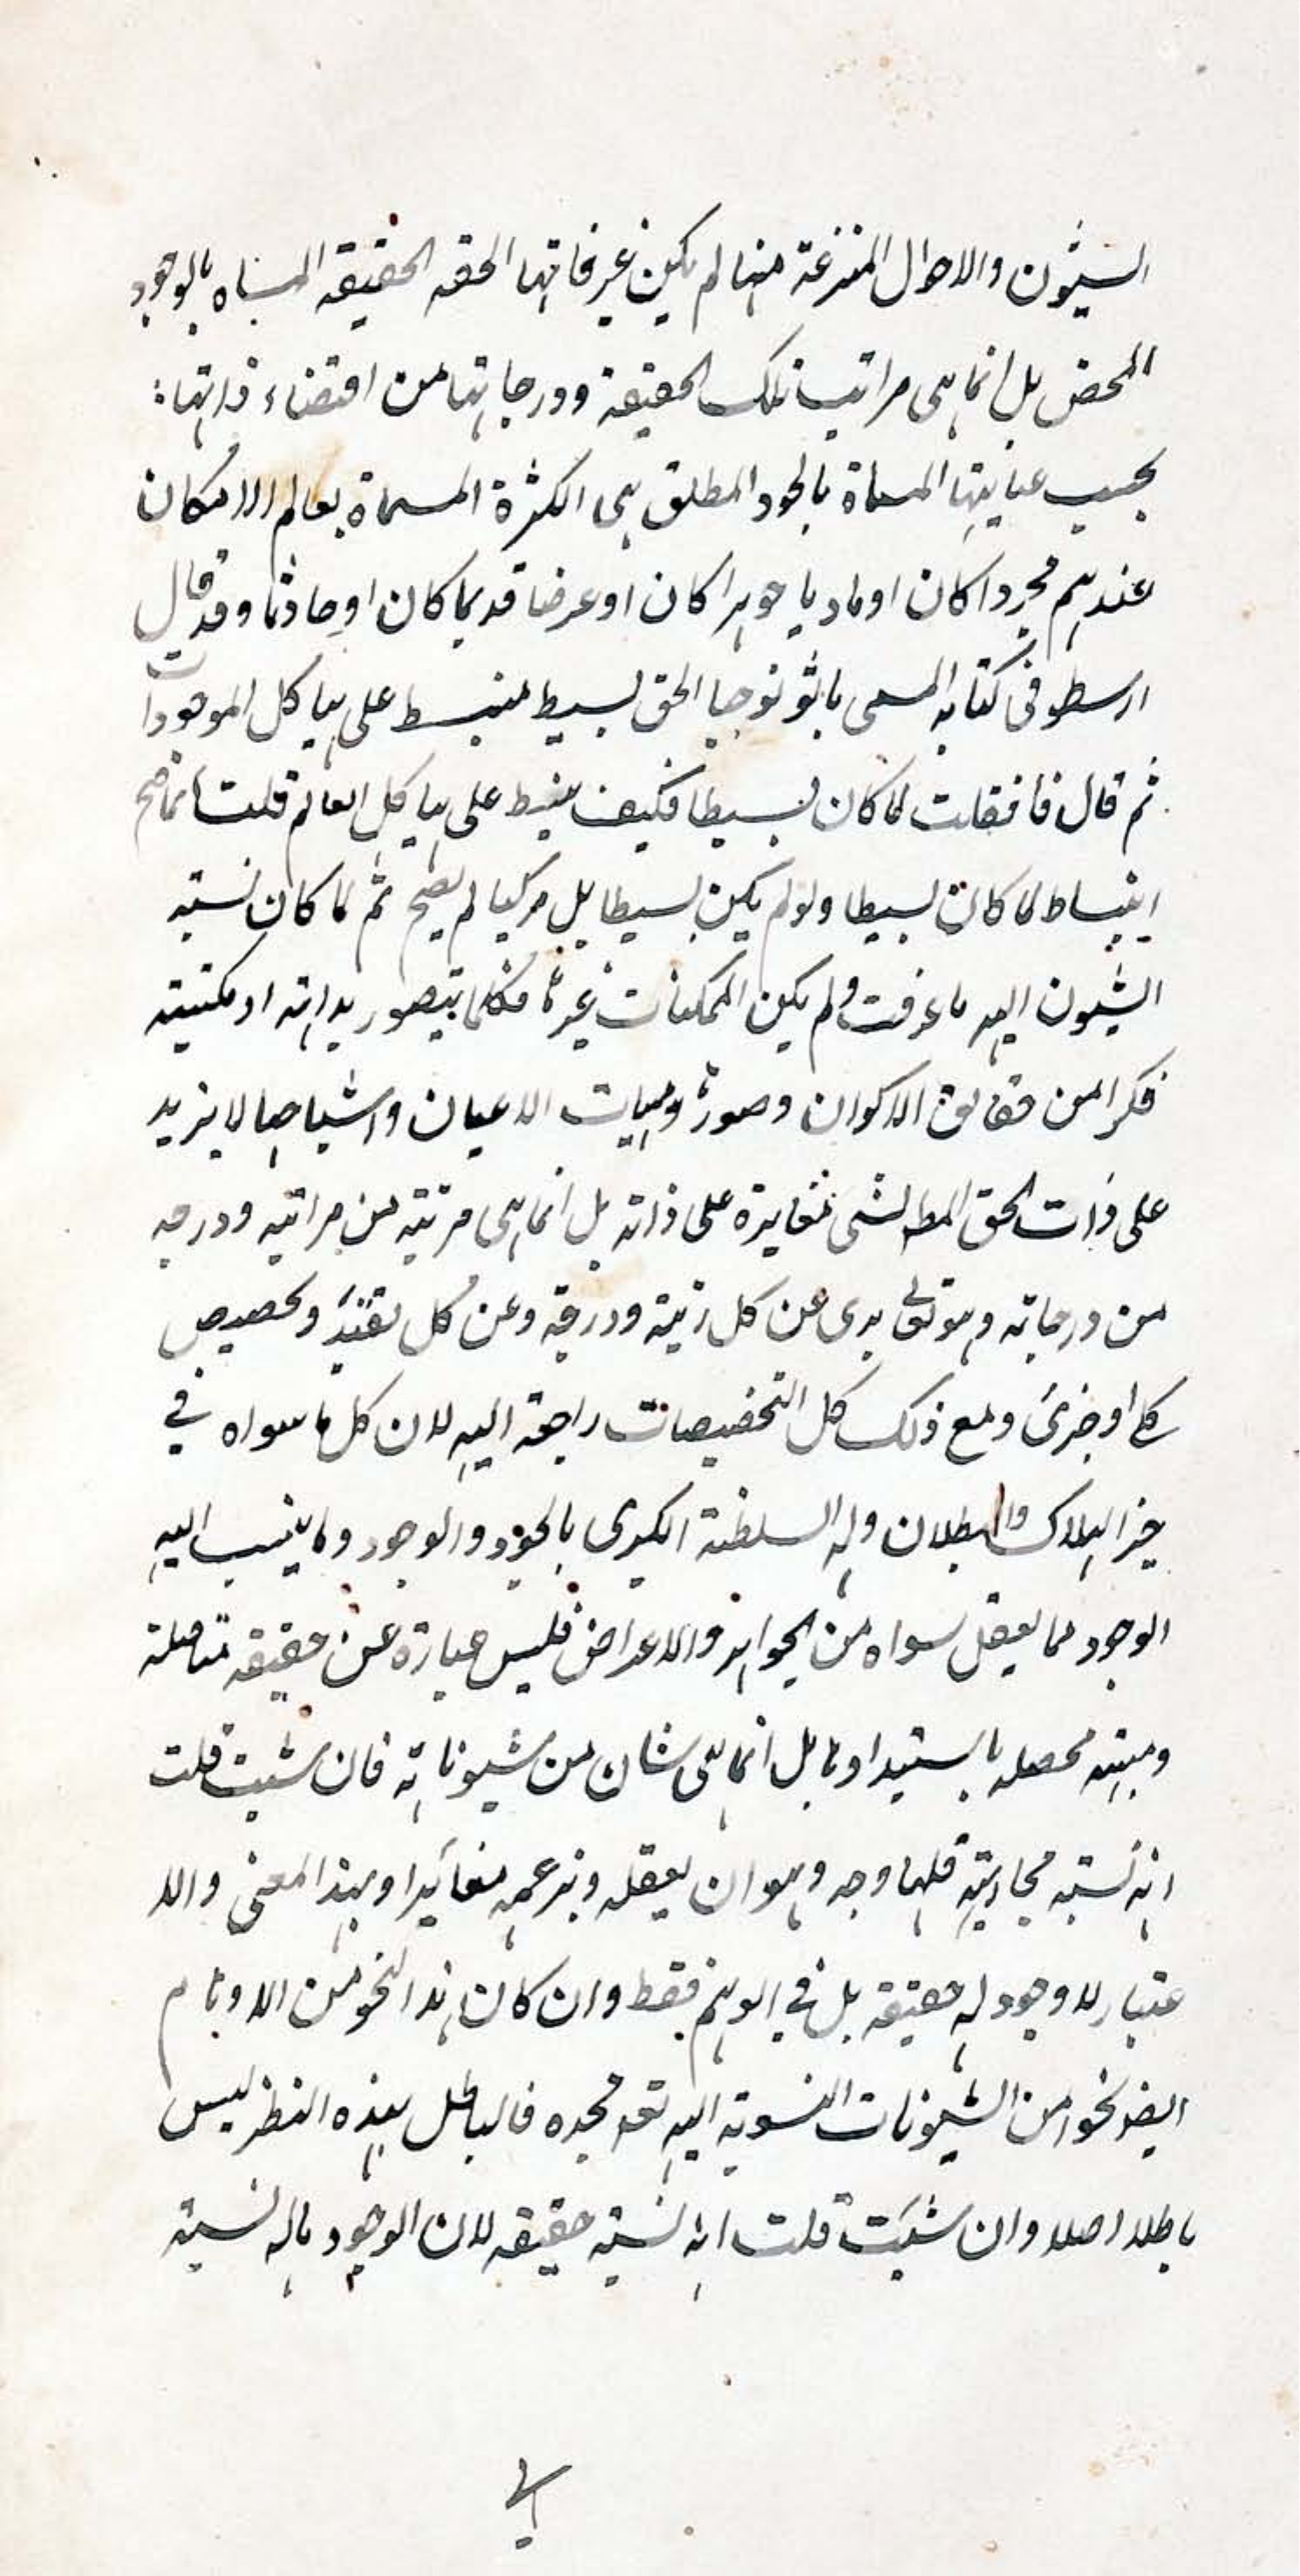 الشيون والاحوال المنتزعة منها لم يكن غير ذاتها الحقه الحقيقه المسماه بالوجود
المحض بل انما هى مراتب تلك الحقيقة ودرجاتها من اقتضاء ذاتها
بحسب عنايتها المسماة بالجود المطلق هى الكثرة المسماة بعالم الامكان
عندهم مجردا كان او ماديا جوهرا كان او عرضا قديما كان او حادثا وقد قال
ارسطو فى كتابه المسمى باثولوجيا الحق بسيط منبسط على هياكل الموجودات
ثم قال فان قلت لما كان بسيطا فكيف ينبسط على هياكل العالم قلت انما صح
انبساط لما كان بسيطا ولو لم يكن بسيطا بل مركبا لم يصح ثم لما كان نسبته
الشيون اليه ما عرفت ولم يكن الممكنات غيره فكلما يتصور بداهته او مكتسبة
فكرا من حقايق الاكوان وصوره وهيات الاعيان واشباحها لا يزيد
على ذات الحق المط لشى مغايرة على ذاته بل انما هى مرتبة من مراتبه ودرجه
من درجاته وهو تعالى برى عن كل رتبة ودرجه وعن كل تقيد وتخصيص
كلى او جزئى ومع ذلك كل التخصيصات راجعة اليه لان كل ما سواه في
حيز الهلاك والبطلان وله السلطنة الكبرى بالجود والوجود وما ينسب اليه
الوجود مما يعقل سواه من الجواهر والاعراض فليس عبارة عن حقيقه متاصلة
ومهيته محصله باستبدادها بل انما هى شان من شيوناته فان شئت قلت
انه نسبه مجازية فلها وجه وهو ان يعقله ويزعمه مغايرا وبهذا المعنى والا
عتبار لا وجود له حقيقه بل في الوهم فقط وان كان هذا النحو من الاوهام
ايضا نحوا من الشيونات المنسوبه اليه تعالى مجده فالباطل بهذه النظر ليس
باطلا اصلا وان شئت قلت انه نسبة حقيقه لان الوجود ماله نسبة